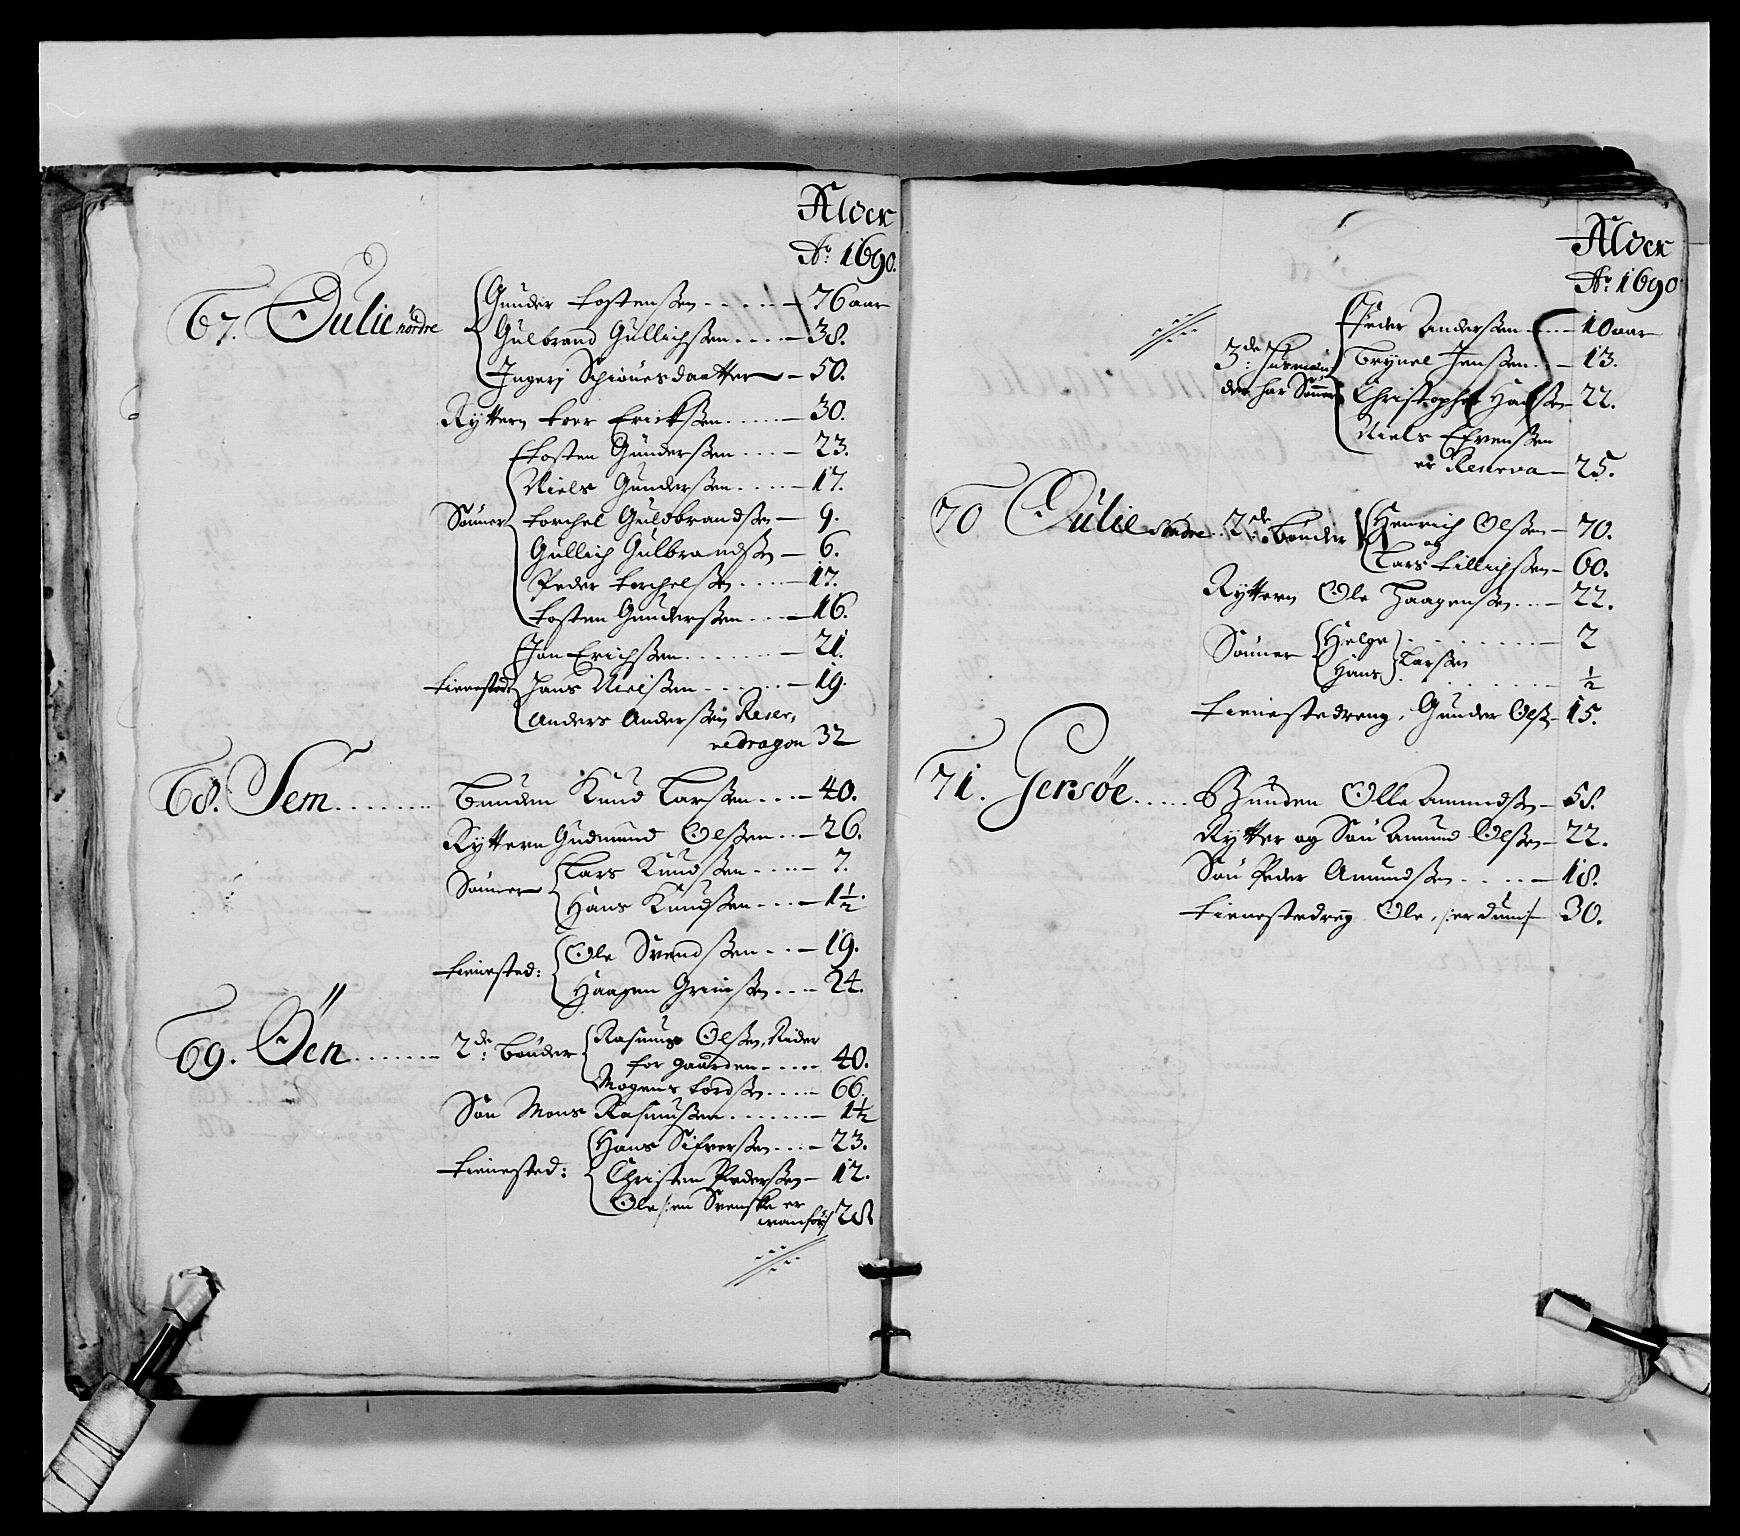 Alder
Ao: 1690.
67. Dulie nordre
Gunder Tostensen - 76 aar
Gulbrand Gullichsen - 38.
Ingeri Schiouesdaatter - 50.
Rytteren Toer Erichsen - 30.
Sønner
Tosten Gundersen - 23.
Niels Gundersen - 17.
Torchel Guldbrandsen - 9.
Gullich Gulbrandsen - 6.
Peder Torchelsen - 17.
Tosten Gundersen - 16.
Tieneste d:
Jon Erichsen - 21.
Hans Nielsen - 19.
Anders Andersen Reser-
vedragon 32
68. Sem
Bunden Knud Larsen - 40.
Rytteren Gudmund Olsen - 26.
Sønner
Lars Knudsen - 7.
Hans Knudsen - 1½.
Tienested:
Ole Svendsen - 19.
Haagen Grimsen - 24.
69. Øen
2de: Bønder
Rasmus Olsen, Rider
for gaarden - 40.
Mogens Tordsen - 66.
Søn Mons Rasmusen - 1½
Tienested:
Hans Sifversen - 23.
Christen Pedersen - 12.
Ole /:en Svenske er
vanfør/ 28
Alder
Ao: 1690
3de: Husmænd
der har Sønner
Peder Andersen - 10 aar
Brynel Jensen - 13.
Christopher Hansen - 22.
Niels Efvensen
er Reserva - 25.
70 Dulie Søndre
2de: Bønder
Henrich Olsen - 70.
og
Lars Tillichsen - 60.
Rytteren Ole Haagensen - 22.
Sønner
Helge - 2
Larsen
Hans - ½
Tienestedreng, Gunder Ols: - 15.
71. Gersøe
Bunden Olle Amundsen - 58.
Rytter og Søn Amund Olsen - 22.
Søn Peder Amundsen - 18.
Tienestedreng Ole, /:er dum/ - 30.